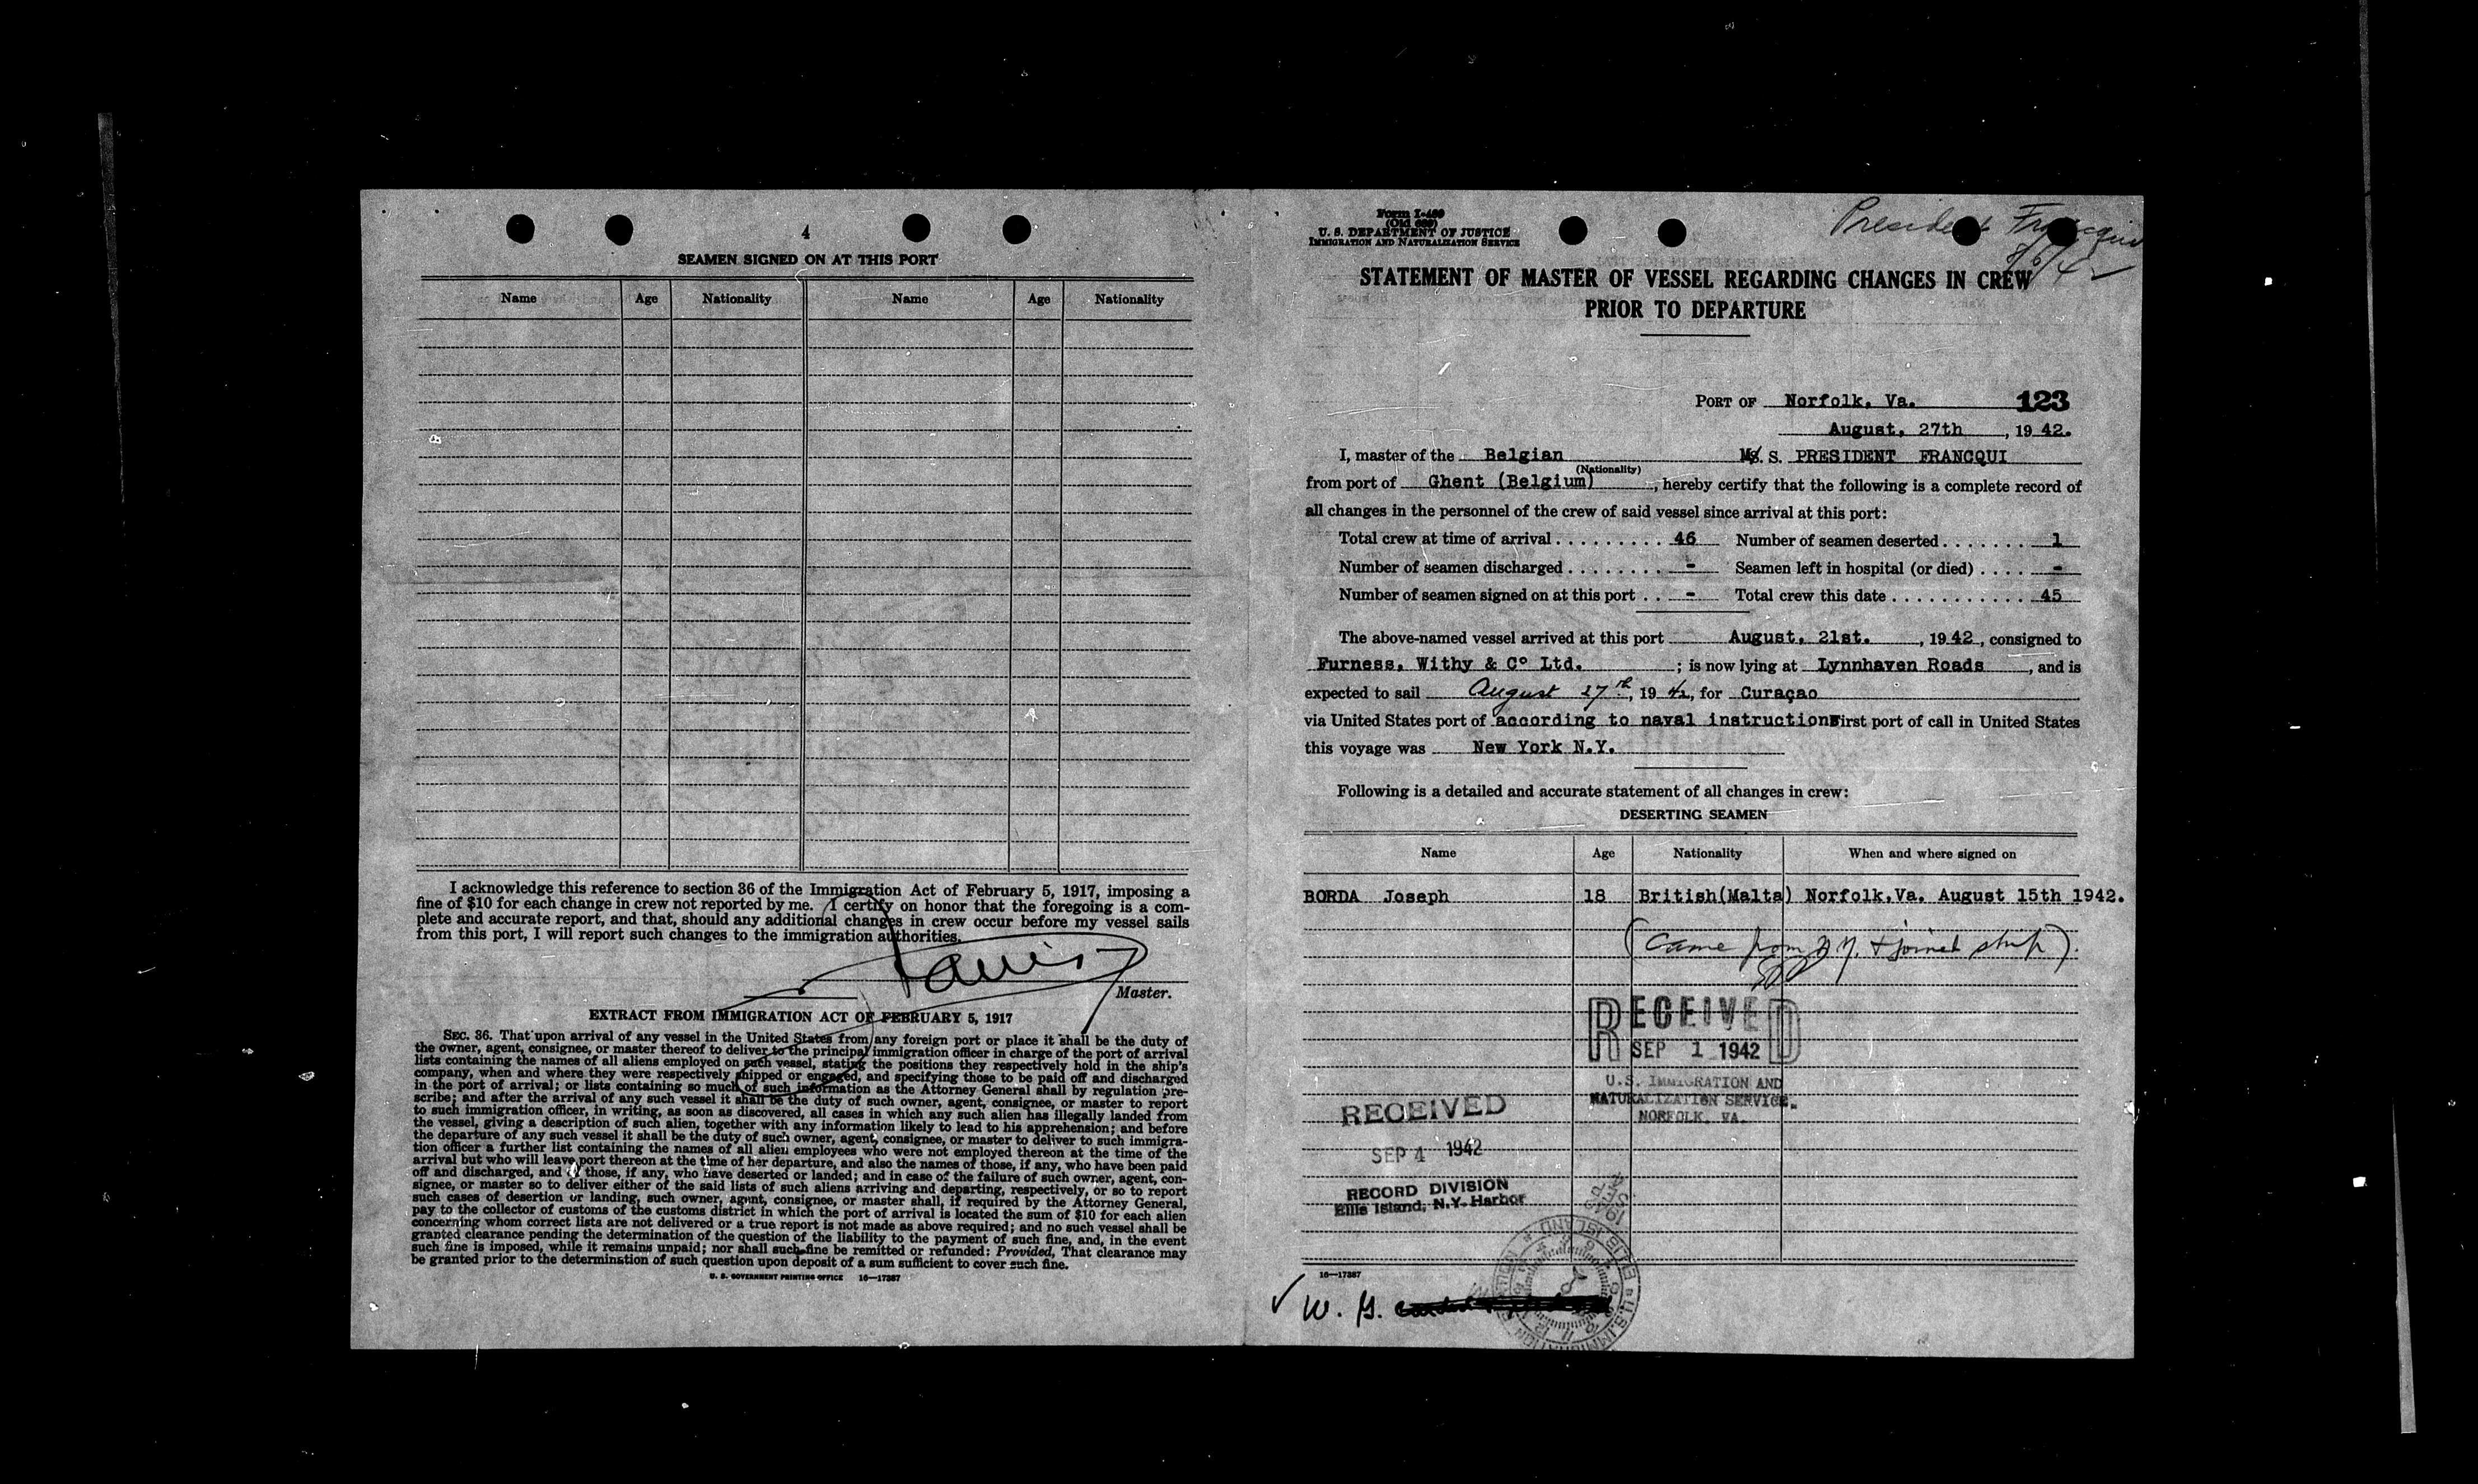 4
SEAMEN SIGNED ON AT THIS PORT
Name Age Nationality Name Age Nationality
I acknowledge this reference to section 36 of the Immigration Act of February 5, 1917, imposing a
fine of $10 for each change in crew not reported by me. I certify on honor that the foregoing is a com-
plete and accurate report, and that, should any additional changes in crew occur before my vessel sails
from this port, I will report such changes to the immigration authorities.
Master.
EXTRACT FROM IMMIGRATION ACT OF FEBRUARY 5, 1917
SEC. 36. That upon arrival of any vessel in the United States from any foreign port or place it shall be the duty of
the owner, agent, consignee, or master thereof to deliver to the principal immigration officer in charge of the port of arrival
lists containing the names of all aliens employed on such vessel, stating the positions they respectively hold in the ship's
company, when and where they were respectively shipped or engaged, and specifying those to be paid off and discharged
in the port of arrival; or lists containing so much of such information as the Attorney General shall by regulation pre-
scribe; and after the arrival of any such vessel it shall be the duty of such owner, agent, consignee, or master to report
to such immigration officer, in writing, as soon as discovered, all cases in which any such alien has illegally landed from
the vessel, giving a description of such alien, together with any information likely to lead to his apprehension; and before
the departure of any such vessel it shall be the duty of such owner, agent, consignee, or master to deliver to such immigra-
tion officer a further list containing the names of all alien employees who were not employed thereon at the time of the
arrival but who will leave port thereon at the time of her departure, and also the names of those, if any, who have been paid
off and discharged, and of those, if any, who have deserted or landed; and in case of the failure of such owner, agent, con-
signee, or master so to deliver either of the said lists of such aliens arriving and departing, respectively, or so to report
such cases of desertion or landing, such owner, agent, consignee, or master shall, if required by the Attorney General,
pay to the collector of customs of the customs district in which the port of arrival is located the sum of $10 for each alien
concerning whom correct lists are not delivered or a true report is not made as above required; and no such vessel shall be
granted clearance pending the determination of the question of the liability to the payment of such fine, and, in the event
such fine is imposed, while it remains unpaid; nor shall such fine be remitted or refunded: Provided, That clearance may
be granted prior to the determination of such question upon deposit of a sum sufficient to cover such fine.
U. S. GOVERNMENT PRINTING OFFICE 16—17387
Form I-489
(Old 689)
U. S. DEPARTMENT OF JUSTICE
IMMIGRATION AND NATURALIZATION SERVICE
President Francqui
8/6/42
STATEMENT OF MASTER OF VESSEL REGARDING CHANGES IN CREW
PRIOR TO DEPARTURE
PORT OF Norfolk, Va. 123
August, 27th, 1942.
I, master of the Belgian M. S. PRESIDENT FRANCQUI
(Nationality)
from port of Ghent (Belgium), hereby certify that the following is a complete record of
all changes in the personnel of the crew of said vessel since arrival at this port:
Total crew at time of arrival . . . . . . . . . 46 Number of seamen deserted . . . . . . . 1
Number of seamen discharged . . . . . . . . - Seamen left in hospital (or died) . . . . -
Number of seamen signed on at this port . . - Total crew this date . . . . . . . . . . . . 45
The above-named vessel arrived at this port August, 21st., 1942, consigned to
Furness, Withy & C° Ltd.; is now lying at Lynnhaven Roads, and is
expected to sail August 27th, 1942, for Curaçao
via United States port of according to naval instructions First port of call in United States
this voyage was New York N.Y.
Following is a detailed and accurate statement of all changes in crew:
DESERTING SEAMEN
Name Age Nationality When and where signed on
BORDA Joseph 18 British(Malta) Norfolk,Va. August 15th 1942.
(Came from N.Y. + joined ship).
RECEIVED
SEP 1 1942
U.S. IMMIGRATION AND
NATURALIZATION SERVICE.
NORFOLK, VA.
RECEIVED
SEP 4 1942
RECORD DIVISION
Ellis Island, N.Y. Harbor
16—17387
✓ W. G.
U.S. IMMIGRATION
ELLIS ISLAND